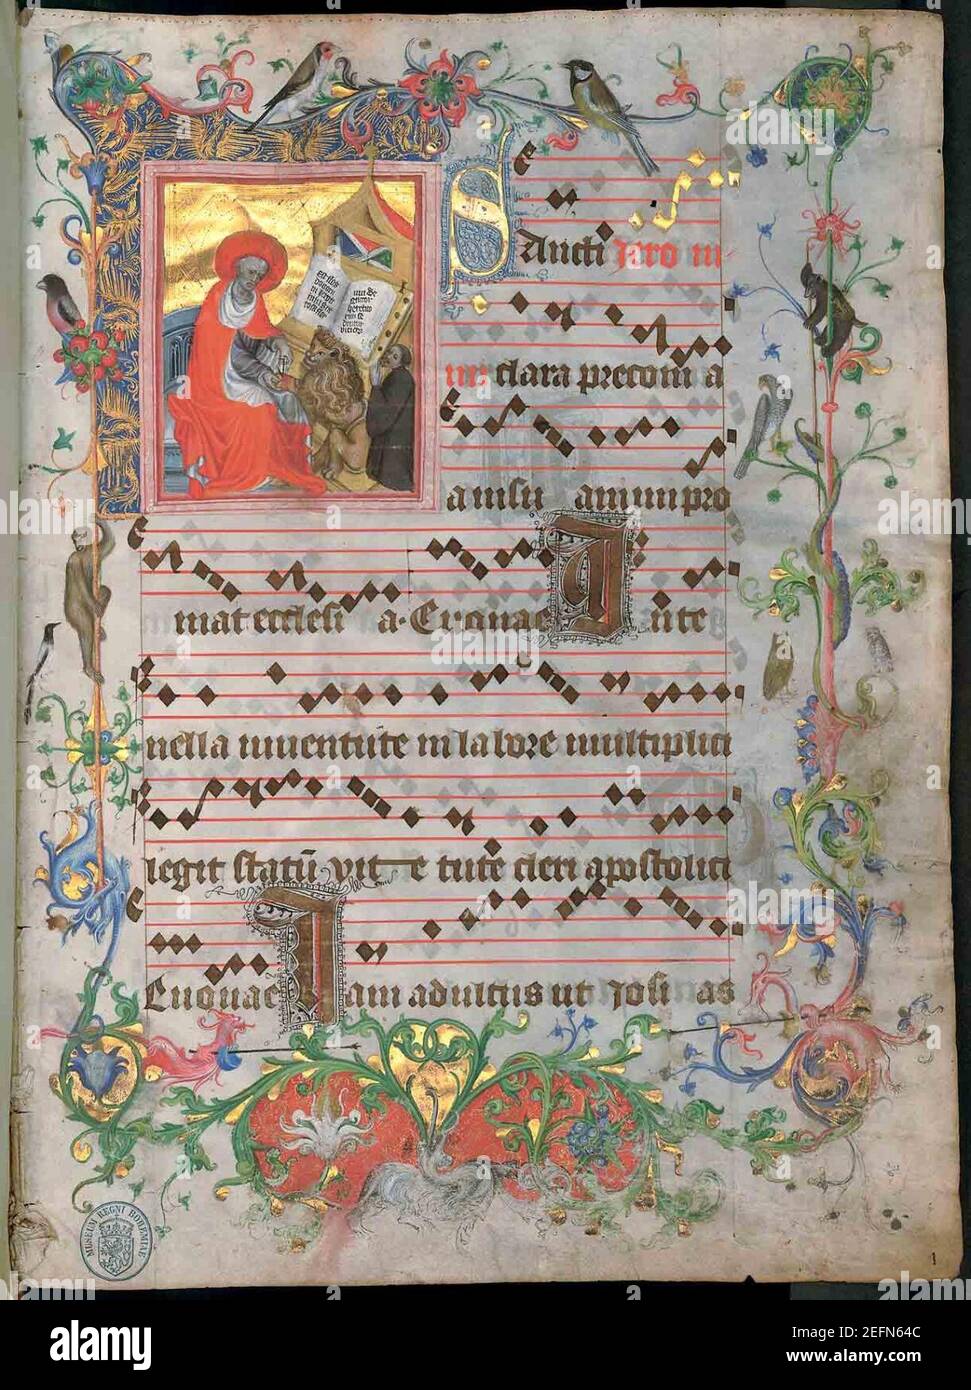 Sancti Jero ni
mi clara preconi a
a visu animi pro
mat ecclesi a. Evovae Ante
nella iuventute in labore multiplici
legit statū vit e tute cleri apostolici
Evovae Iam adultus ut Josi as
MUSEUM REGNI BOHEMIAE
1
alamy
Image ID: 2EFN64C
www.alamy.com